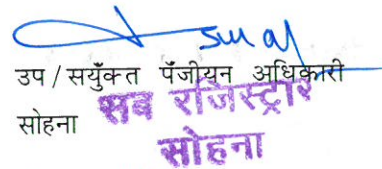 उप / सयुँक्त पँजीयन अधिकारी
सोहना
सब रजिस्ट्रार
सोहना